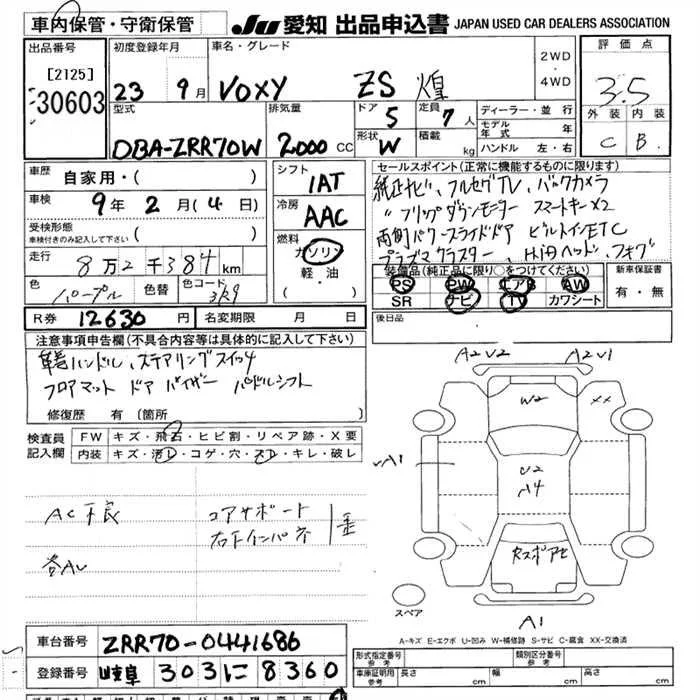 車内保管・守衛保管
JU 愛知 出品申込書 JAPAN USED CAR DEALERS ASSOCIATION
出品番号
[2125]
30603
初度登録年月
23年 9月
車名・グレード
VOXY ZS 煌
2WD
・
4WD
評価点
3.5
外装 内装
C B
型式
DBA-ZRR70W
排気量
2,000 CC
ドア 5
形状 W
定員 7人
積載 kg
ディーラー・並行
モデル年式 年
ハンドル 左・右
車歴
自家用・( )
車検
9年 2月 (4日)
受検形態
車検付きのみ記入して下さい
走行
8万2千384km
色
パープル
色替
色コード
3R9
シフト
IAT
冷房
AAC
燃料
ガソリン
軽・油
( )
セールスポイント(正常に機能するものに限ります)
純正ナビ、フルセグTV、バックカメラ
〃 フリップダウンモニター スマートキーX2
両側パワースライドドア ビルトインETC
プラズマクラスター、Hidヘッド、フォグ
装備品(純正品に限り○をつけてください)
PS PW エアB AW
SR ナビ TV カワシート
新車保証書
有・無
R券 12630円
名変期限 月 日
後日品
注意事項申告欄(不具合内容等は具体的に記入して下さい)
革巻ハンドル、ステアリングスイッチ
フロアマット ドアバイザー パドルシフト
修復歴 有 (箇所
検査員
記入欄
FW キズ・飛石・ヒビ割・リペア跡・X要
内装 キズ・汚レ・コゲ・穴・スレ・キレ・破レ
AC不良
コアサポート
右下インパネ
A2V2
A2V1
W2
XX
A1
U2
A4
スペア
A1
A-キズ E-エクボ U-凹み W-補修跡 S-サビ C-腐食 XX-交換済
車台番号 ZRR70-0441686
登録番号 岐阜 303 に 8360
形式指定番号
参考
類別区分番号
参考
車庫証明用
参考
長さ cm
幅 cm
高さ cm